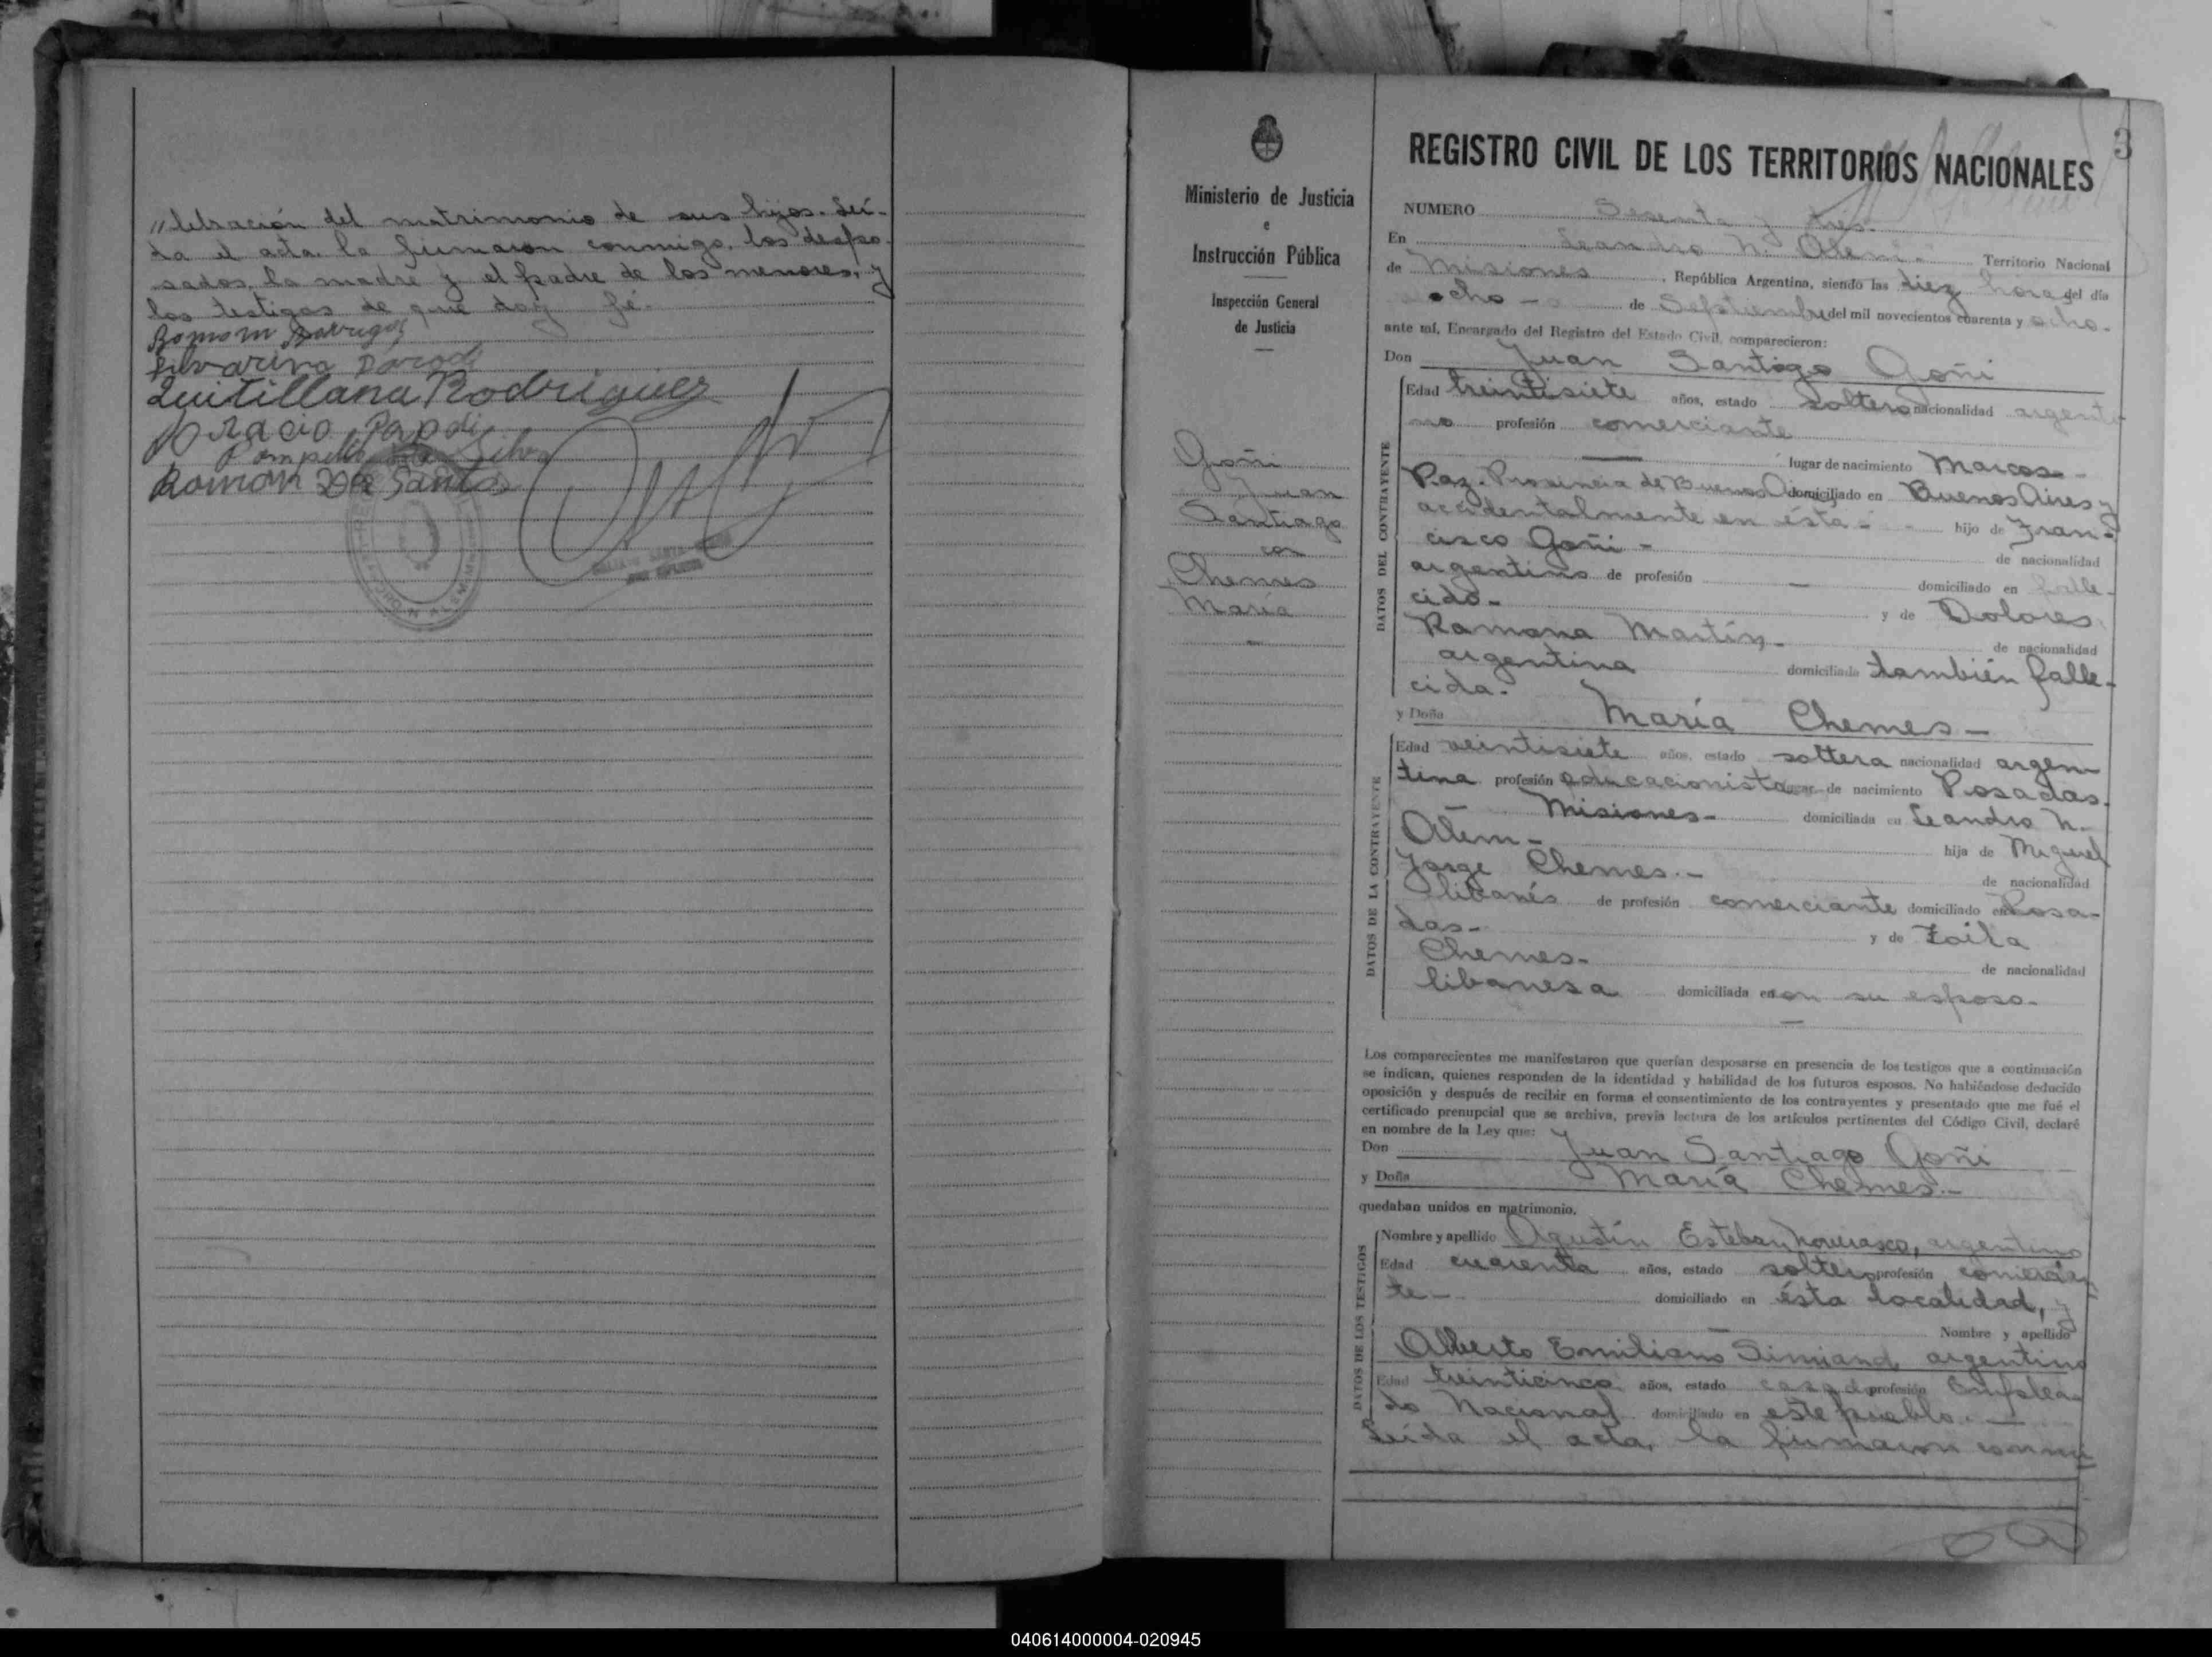 "lebración del matrimonio de sus hijos. Leí-
da el acta, la firmaron conmigo, los despo-
sados, la madre y el padre de los menores, y
los testigos de que doy fé.-
Silvarina Parodi
Quitillana Rodriguez
Parodi
Silva
Román Dos Santos
Ministerio de Justicia
e
Instrucción Pública
Inspección General
de Justicia
Goñi
Juan
Santiago
con
Chemes
María
3
REGISTRO CIVIL DE LOS TERRITORIOS NACIONALES
NUMERO Sesenta y tres.-
En Leandro N. Alem.- Territorio Nacional
de Misiones, República Argentina, siendo las diez horas del día
ocho - de Septiembre del mil novecientos cuarenta y ocho.-
ante mí, Encargado del Registro del Estado Civil, comparecieron:
Don Juan Santiago Goñi
DATOS DEL CONTRAYENTE
Edad treintisiete años, estado soltero nacionalidad argenti-
no profesión comerciante
lugar de nacimiento Marcos
Paz. Provincia de Buenos Aires domiciliado en Buenos Aires y
accidentalmente en ésta - hijo de Fran-
cisco Goñi - de nacionalidad
argentino de profesión - domiciliado en falle-
cido.- y de Dolores
Ramona Martín,- de nacionalidad
argentina domiciliada también falle-
cida.-
y Doña María Chemes -
DATOS DE LA CONTRAYENTE
Edad veintisiete años, estado soltera nacionalidad argen-
tina profesión educacionista lugar de nacimiento Posadas.
- Misiones- domiciliada en Leandro N.
Alem- hija de Miguel
Jorge Chemes.- de nacionalidad
libanés de profesión comerciante domiciliado en Posa-
das- y de Zoila
Chemes- de nacionalidad
libanesa domiciliada en con su esposo.
Los comparecientes me manifestaron que querían desposarse en presencia de los testigos que a continuación
se indican, quienes responden de la identidad y habilidad de los futuros esposos. No habiéndose deducido
oposición y después de recibir en forma el consentimiento de los contrayentes y presentado que me fué el
certificado prenupcial que se archiva, previa lectura de los artículos pertinentes del Código Civil, declaré
en nombre de la Ley que:
Don Juan Santiago Goñi
y Doña María Chemes.-
quedaban unidos en matrimonio.
DATOS DE LOS TESTIGOS
Nombre y apellido Agustín Esteban argentino
Edad cuarenta años, estado soltero profesión comercian-
te- domiciliado en ésta localidad, y
Nombre y apellido
Alberto Emiliano Simiand argentino
Edad treinticinco años, estado casado profesión Emplea-
do Nacional domiciliado en este pueblo.-
Leída el acta, la firmaron conmi
040614000004-020945